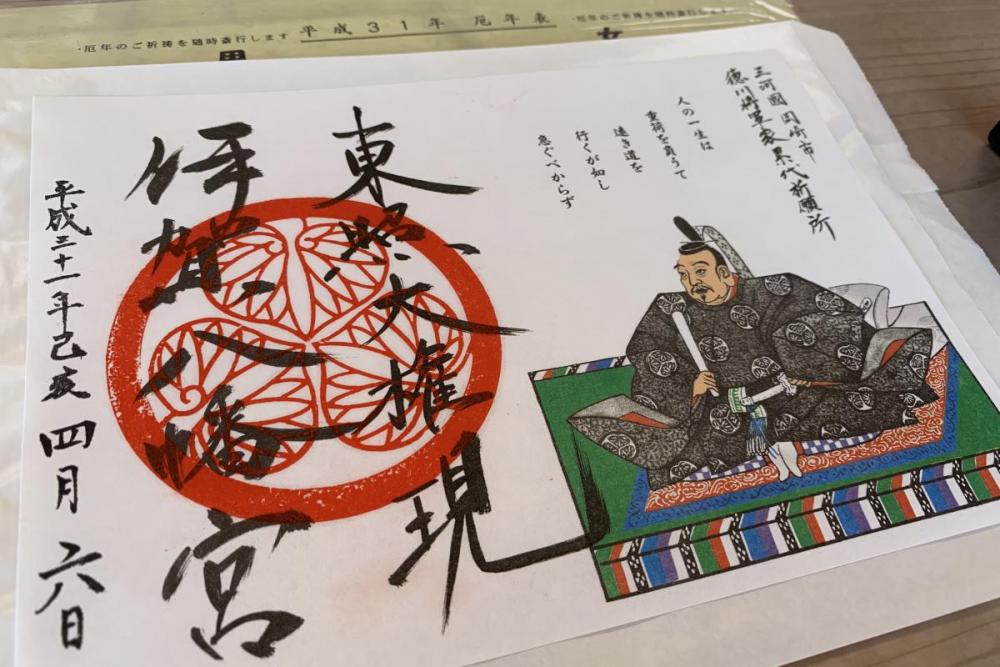 ・厄年のご祈祷を随時斎行します 平成31年 厄年表 ・厄年のご祈祷を随時斎行します
女
三河國岡崎市
徳川将軍家累代祈願所
人の一生は
重荷を負うて
遠き道を
行くが如し
急ぐべからず
東照大権現
伊賀八幡宮
平成三十一年己亥四月六日